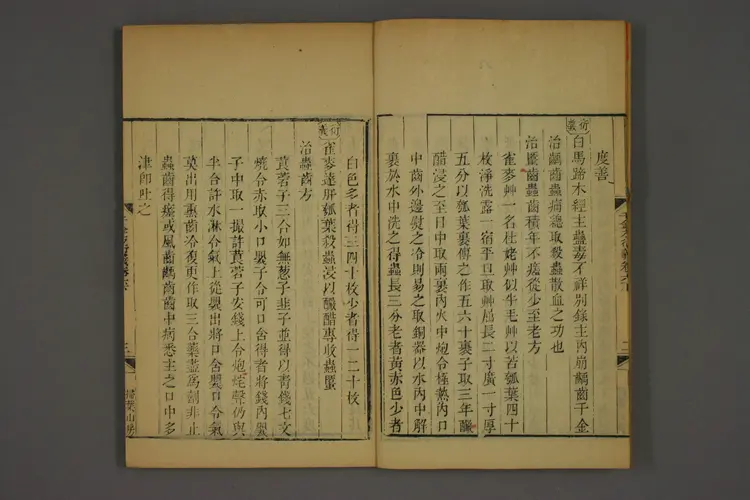 度善
衍義
白馬蹄木經主蠱毒不祥別錄主內崩齲齒千金
治齲齒蟲病總取殺蟲散血之功也
治䘌齒蟲齒積年不瘥從少至老方
雀麥艸一名杜姥艸似牛毛艸以苦瓠葉四十
枚淨洗露一宿平旦取艸屈長二寸廣一寸厚
五分以瓠葉裹傳之作五六十裹子取三年釅
醋浸之至日中取兩裹內火中炮令極熱內口
中齒外邊熨之冷則易之取銅器以水內中解
裹於水中洗之得蟲長三分老者黃赤色少者
白色多者得三四十枚少者得一二十枚
衍義
雀麥達肝瓠葉殺蟲浸以釅醋專收蟲䘌
治蟲齒方
莨菪子三合如無蔥子韭子並得以靑錢七文
燒令赤取小口甖子令可口含得者將錢內甖
子中取一撮許莨菪子安錢上令炮烢聲仍與
半合許水淋令氣上從甖出將口含甖口令氣
莫出用熏齒冷復更作取三合藥盡爲劑非止
蟲齒得瘥或風齒齲齒齒中病悉主之口中多
津卽吐之
千金方衍義卷六下
掃葉山房